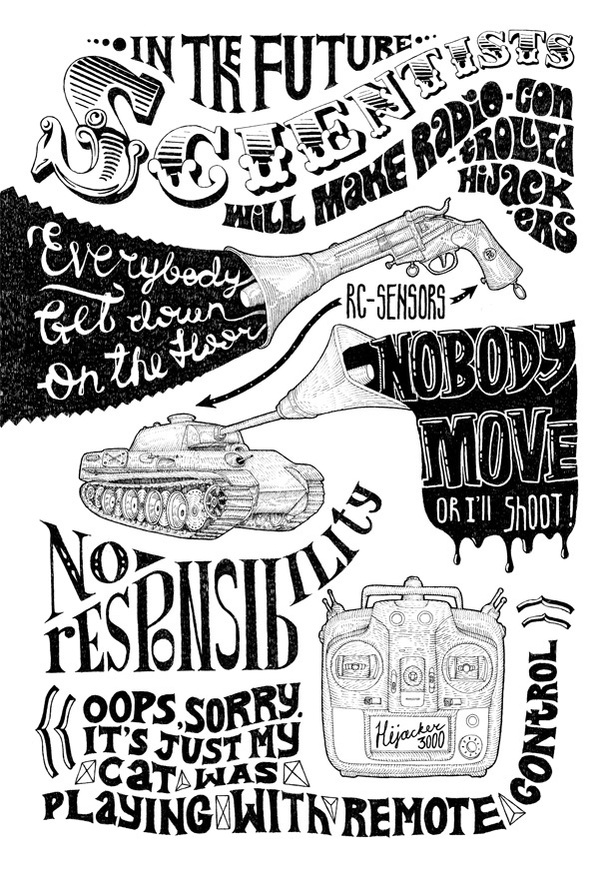 IN THE FUTURE
SCIENTISTS
WILL MAKE RADIO-CON
-TROLLED
HIJACK
-ERS
Everybody
Get down
On the floor
RC-SENSORS
NOBODY
MOVE
OR I'll ShOOT!
NO
RESPONSIBILITY
Hijacker
3000
《 OOPS, SORRY.
IT'S JUST MY
CAT WAS
PLAYING WITH REMOTE CONTROL 》